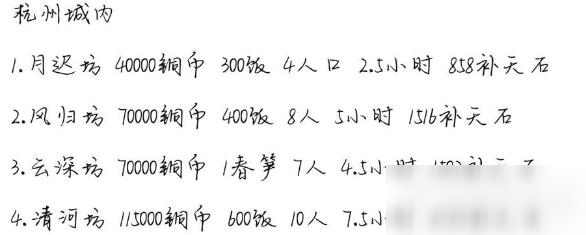 杭州城内
1.月迟坊 40000铜币 300饭 4人口 2.5小时 858补天石
2.风归坊 70000铜币 400饭 8人 5小时 1516补天石
3.云深坊 70000铜币 1春笋 7人 4.5小时
4.清河坊 115000铜币 600饭 10人 7.5小